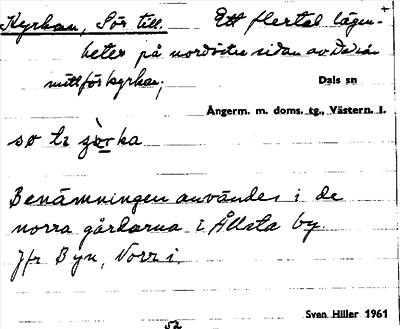 Kyrkan, Sör till. Ett flertal lägen-
heter på nordöstra sidan av Dalsån
mitt för kyrkan;
Dals sn
Ångerm. m. doms. tg., Västern. l.
sø te
Benämningen användes i de
norra gårdarna i Ållsta by.
Jfr Byn, Norr i.
Sven Hiller 1961
52